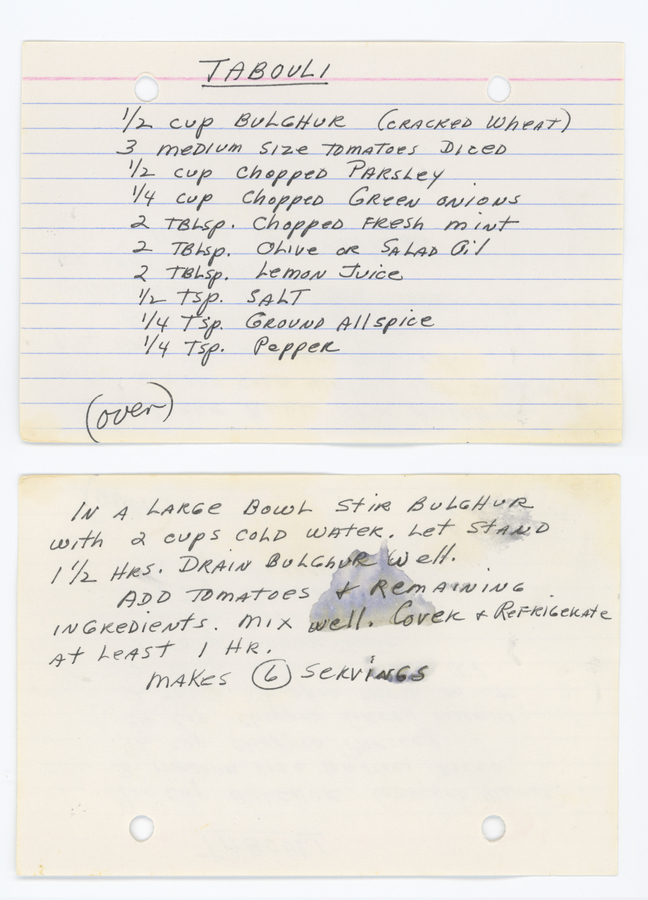 TABOULI
1/2 cup BULGHUR (CRACKED WHEAT)
3 MEDIUM SIZE TOMATOES DICED
1/2 cup Chopped PARSLEY
1/4 cup Chopped GREEN ONIONS
2 TBLSP. Chopped FRESH MINT
2 TBLSP. OLIVE OR SALAD OIL
2 TBLSP. LEMON JUICE
1/2 TSP. SALT
1/4 TSP. GROUND Allspice
1/4 TSP. Pepper
(over)
IN A LARGE BOWL STIR BULGHUR
WITH 2 CUPS COLD WATER. LET STAND
1 1/2 HRS. DRAIN BULGHUR WELL.
ADD TOMATOES & REMAINING
INGREDIENTS. MIX WELL. COVER & REFRIGERATE
AT LEAST 1 HR.
MAKES 6 SERVINGS